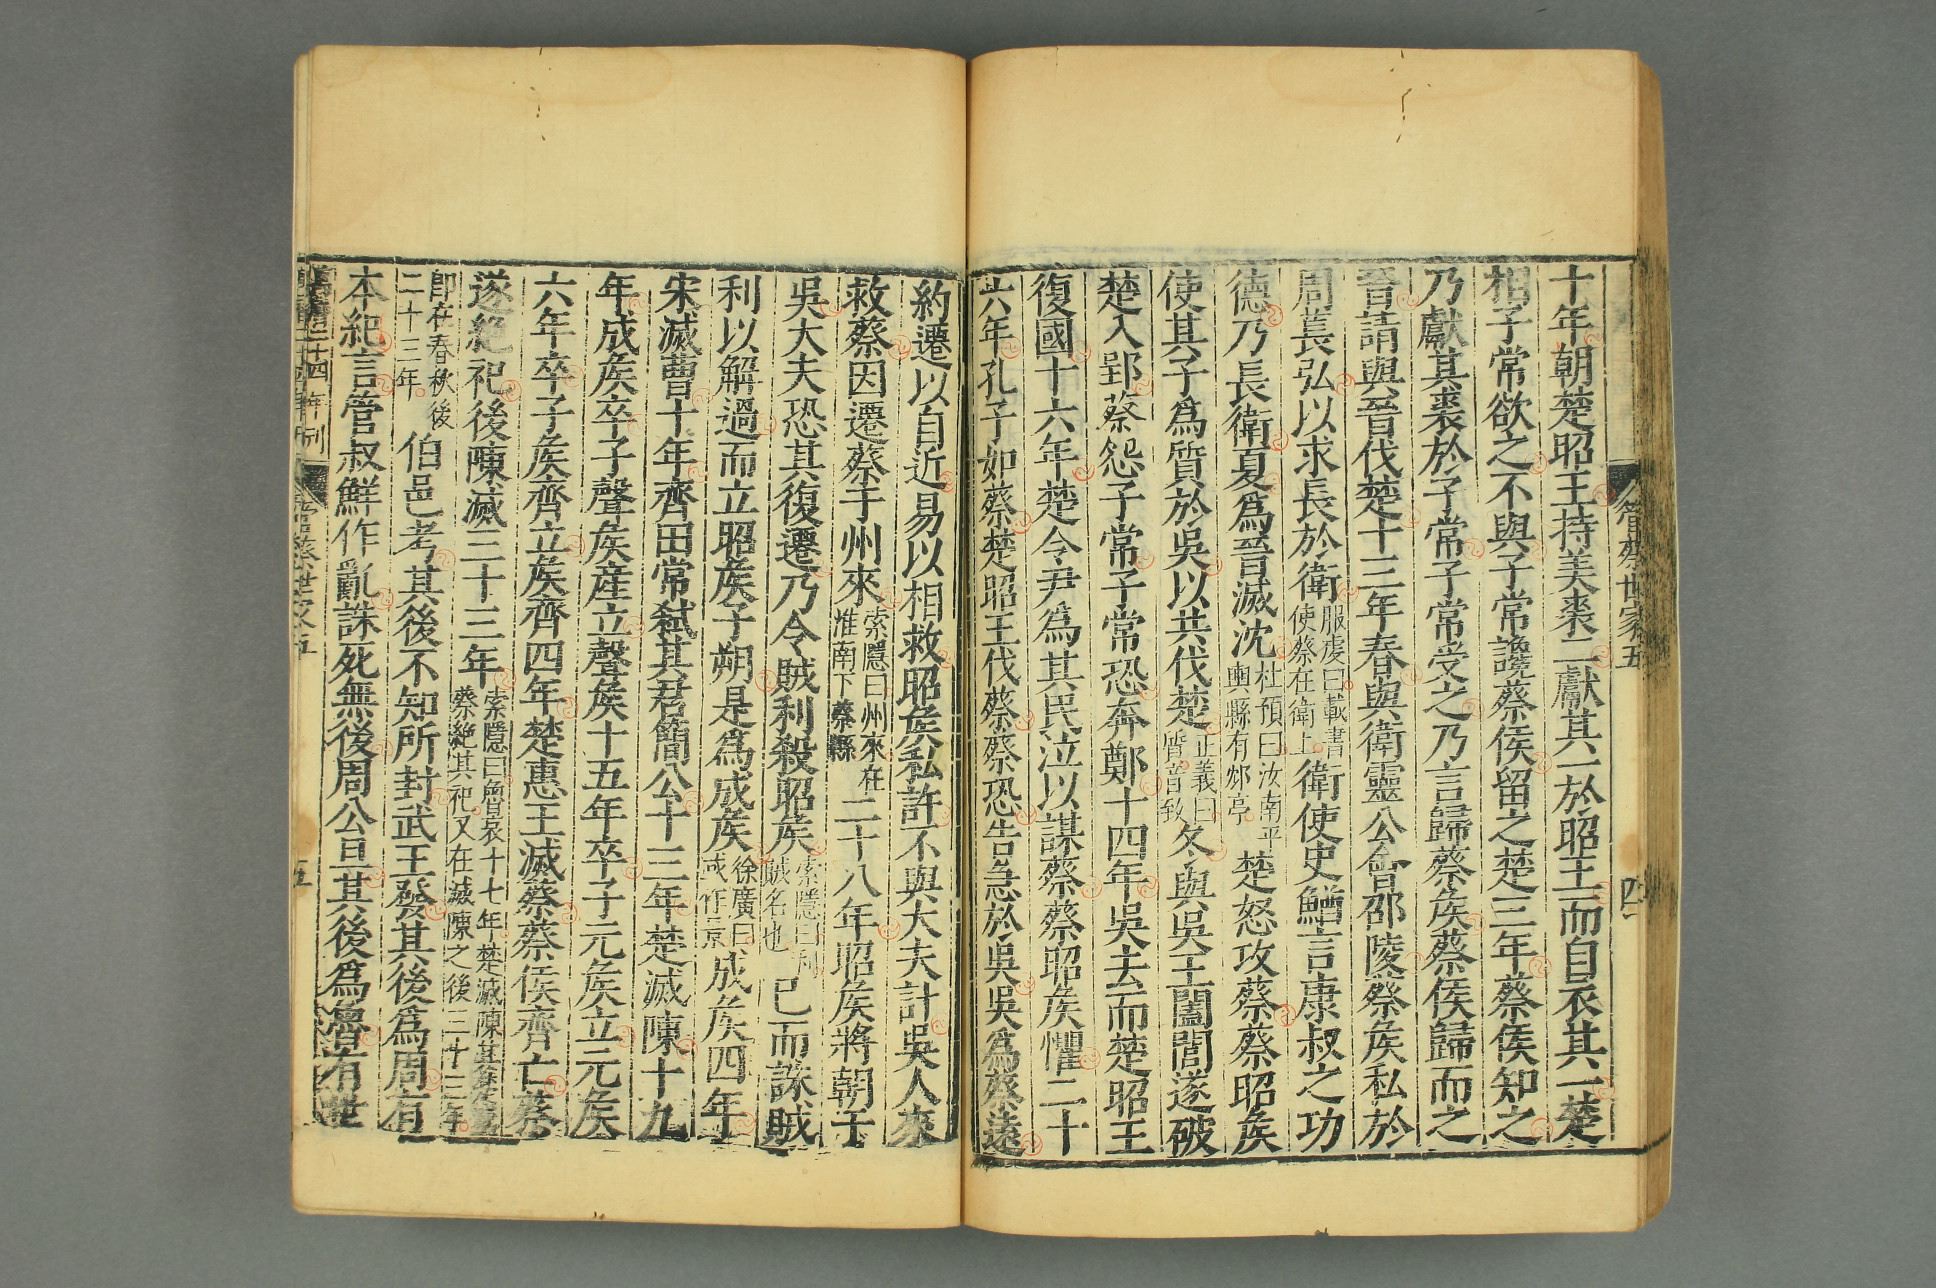 管蔡世家五
四
十年朝楚昭王持美裘二獻其一於昭王而自衣其一楚
相子常欲之不與子常讒蔡侯留之楚三年蔡侯知之
乃獻其裘於子常子常受之乃言歸蔡侯蔡侯歸而之
晉請與晉伐楚十三年春與衛靈公會邵陵蔡侯私於
周萇弘以求長於衛服虔曰載書使蔡在衛上衛使史鰌言康叔之功
德乃長衛夏爲晉滅沈杜預曰汝南平輿縣有邥亭楚怒攻蔡蔡昭侯
使其子爲質於吳以共伐楚正義曰質音致冬與吳王闔閭遂破
楚入郢蔡怨子常子常恐奔鄭十四年吳去而楚昭王
復國十六年楚令尹爲其民泣以謀蔡蔡昭侯懼二十
六年孔子如蔡楚昭王伐蔡蔡恐告急於吳吳爲蔡遠
約遷以自近易以相救昭侯私許不與大夫計吳人來
救蔡因遷蔡于州來索隱曰州來在淮南下蔡縣二十八年昭侯將朝于
吳大夫恐其復遷乃令賊利殺昭侯索隱曰利賊名也已而誅賊
利以解過而立昭侯子朔是爲成侯徐廣曰或作景成侯四年
宋滅曹十年齊田常弒其君簡公十三年楚滅陳十九
年成侯卒子聲侯産立聲侯十五年卒子元侯立元侯
六年卒子侯齊立侯齊四年楚惠王滅蔡蔡侯齊亡蔡
遂絕祀後陳滅三十三年索隱曰魯哀十七年楚滅陳其楚滅蔡絕其祀又在滅陳之後三十三年
卽在春秋後二十三年伯邑考其後不知所封武王發其後爲周有
本紀言管叔鮮作亂誅死無後周公旦其後爲魯有世